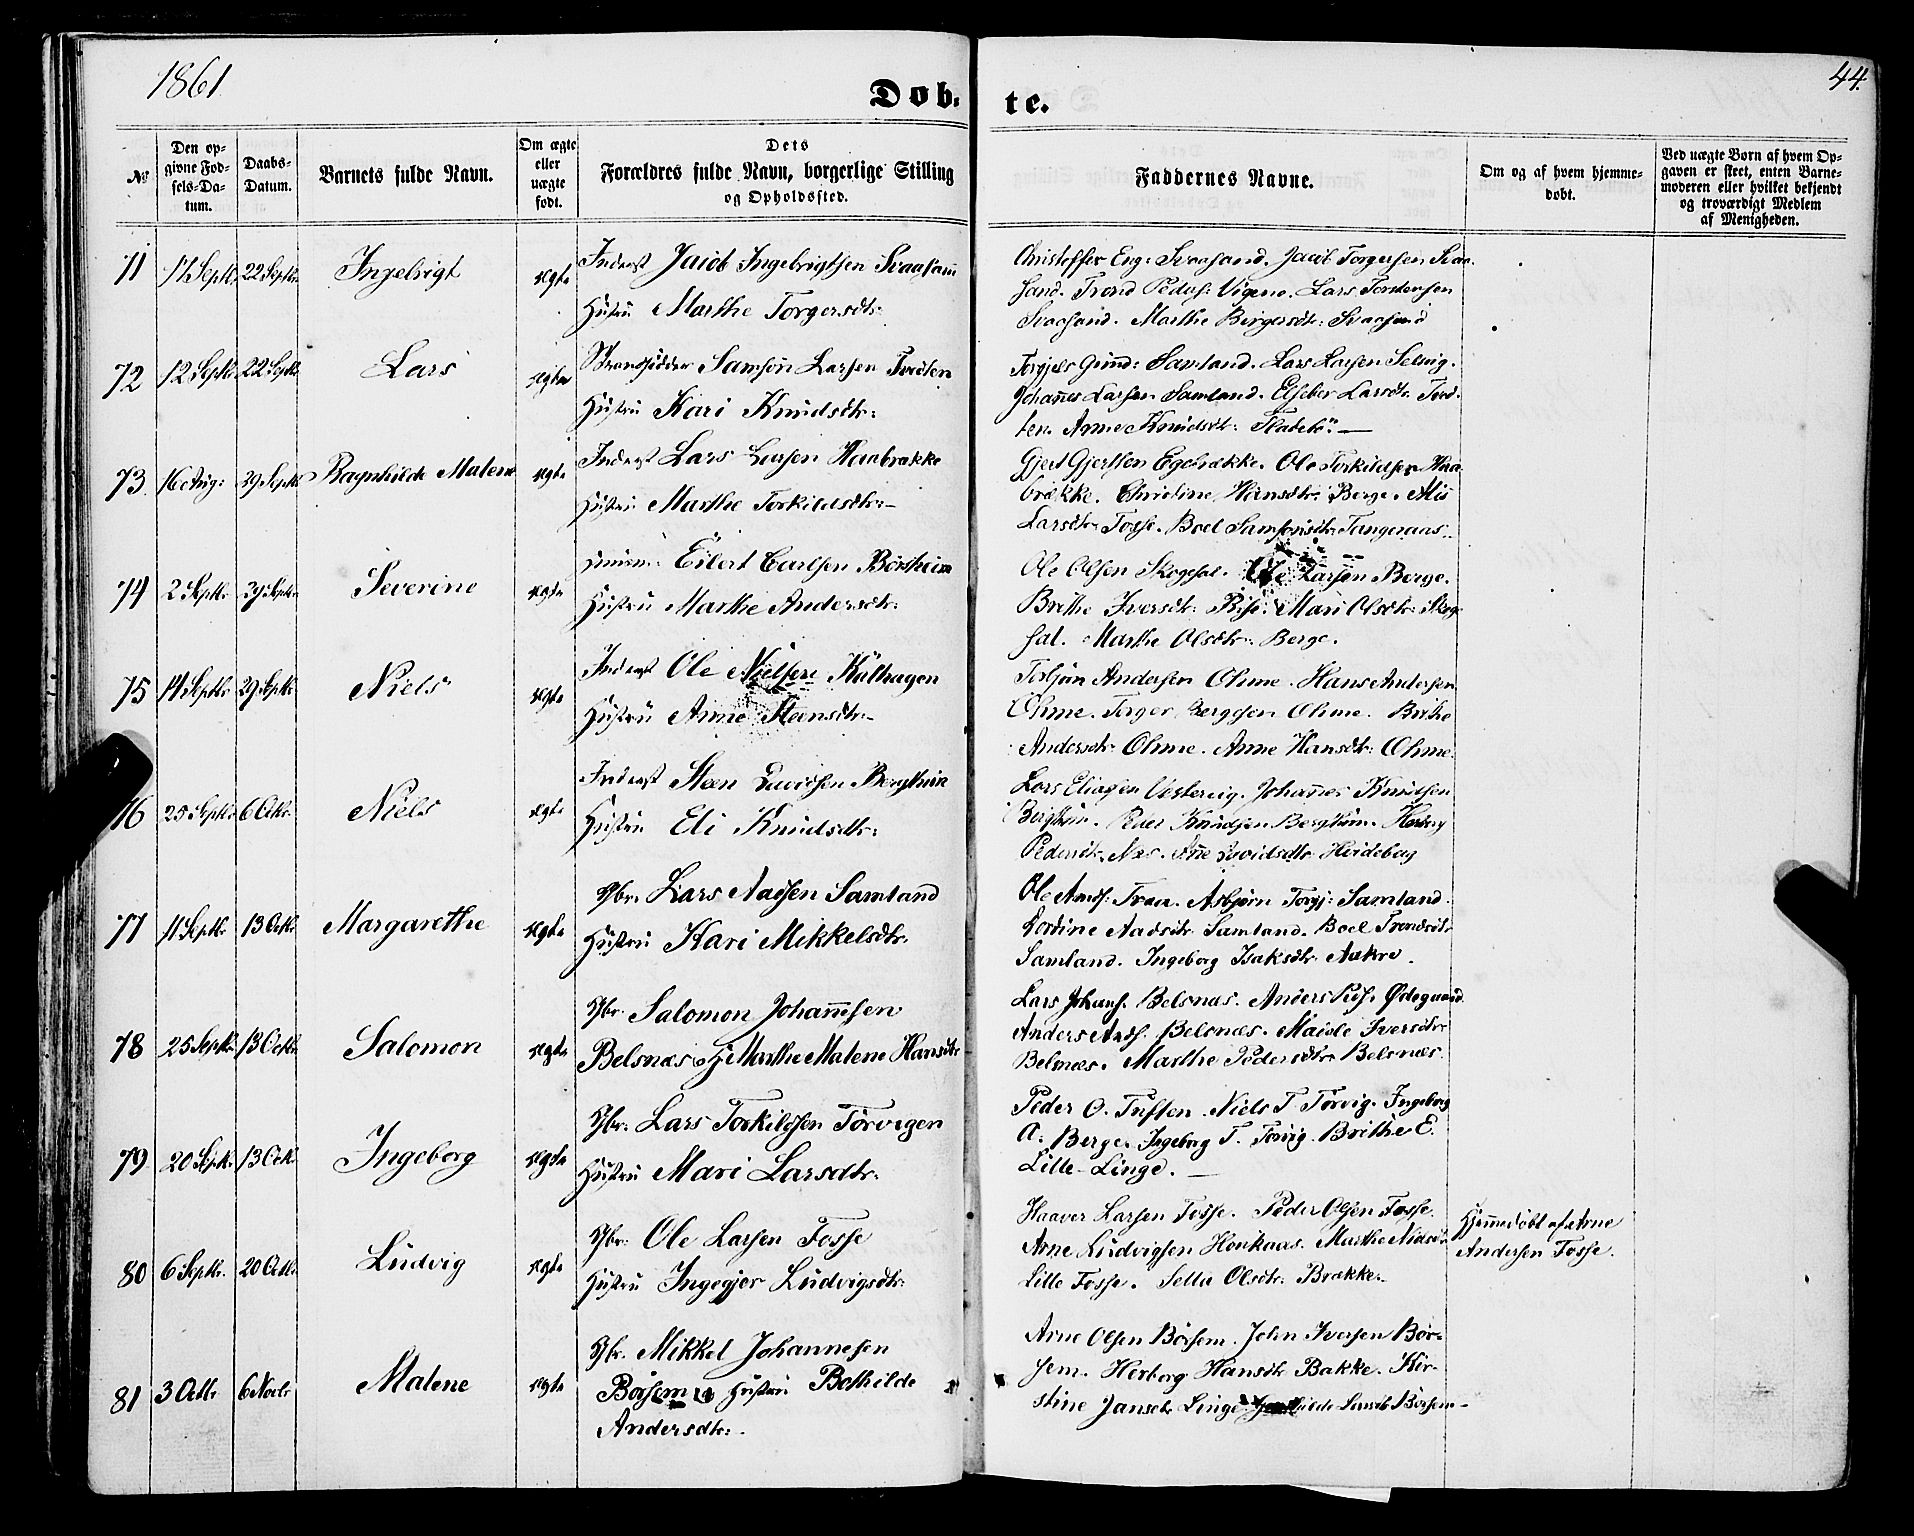 1861
44.
Døb-
te.
№
Den op-
givne Fød-
sels-Da-
tum.
Daabs-
Datum.
Barnets fulde Navn.
Om ægte
eller
uægte
født.
Dets
Forældres fulde Navn, borgerlige Stilling
og Opholdssted.
Faddernes Navne.
Om og af hvem hjemme-
døbt.
Ved uægte Børn af hvem Op-
gaven er skeet, enten Barne-
moderen eller hvilket bekjendt
og troværdigt Medlem
af Menigheden.
71 Septbr. 22 Septbr. Ingebrigt ægte
Inderst Jacob Ingebrigtsen Svaasand
Hustru Marthe Torgersdtr:
Christoffer Eng: Svaasand. Jacob Torgersen Svaa-
sand. Trond Peders: Vigene. Lars Torstensen
Svaasand. Marthe Birgersdtr: Svaasand
72 12 Septbr. 22 Septbr. Lars ægte
Strandsidder Samson Larsen
Hustru Kari Knudsdtr:
Torgjels Gund: Samland. Lars Larsen Selvig.
Johannes Larsen Samland. Elseber Larsdtr.
ten. Anne Knudsdtr:
73. 16 Aug: 29 Septbr. Ragnhilde Malene ægte
Inderst Lars Larsen Haabrække
Hustru Marthe Torkildsdtr:
Gjert Gjertsen Egebrække. Ole Torkildsen Haa-
brække. Christine Hansdtr: Berge.
Larsdtr: Fosse. Boel Samsonsdtr: Tangeraas.
74 2 Septbr. 29 Septbr. Severine ægte
Eilert Carlsen Børsheim
Hustru Marthe Andersdtr:
Ole Olsen Skogsal. Ole Larsen Berge.
Brithe Iversdtr: Mari Olsdtr: Skog-
sal. Marthe Olsdtr: Berge.
75 14 Septbr. 29 Septbr. Niels ægte
Inderst Ole Nielsen Kalhagen
Hustru Anne Steensdtr:
Torbjørn Andersen Ohme. Hans Andersen
Ohme. Torger Ohme. Brithe
Andersdtr: Ohme. Anne Hansdtr: Ohme.
76 25 Septbr. 6 Octbr. Niels ægte
Inderst Steen Davidsen Bergthun
Hustru Eli Knudsdtr:
Lars Eliasen Johannes Knudsen
Bergthun. Peder Knudsen Bergthun. Herborg
Pedersdtr. Næs. Davidsdtr.
77 11 Septbr. 13 Octbr. Margarethe ægte
Gbr. Lars Aadsen Samland
Hustru Kari Mikkelsdtr.
Ole Asbjørn Torgj: Samland.
Aadsdtr. Samland. Boel Trondsdtr.
Samland. Ingeborg Isaksdtr. Aakre.
78 25 Septbr. 13 Octbr. Salomon ægte
Gbr. Salomon Johannesen
Belsnæs H. Marthe Malene Hansdtr.
Lars Johans. Belsnæs. Anders Ødegaard.
Anders Ands. Belsnæs. Iversdtr.
Belsnæs. Marthe Pedersdtr. Belsnæs.
79 20 Sept. 13 Oct. Ingeborg ægte
Gbr. Lars Torkildsen Tørvigen
Hustru Mari Larsdtr.
Peder O. Tuften. Niels T. Tørvig. Ingeborg
A. Berge. Ingeborg T. Tørvig. Brithe E.
Lille-Linge.
80 6 Septbr. 20 Octbr. Ludvig ægte
Gbr. Ole Larsen Fosse
Hustru Ingegjer Ludvigsdtr.
Haaver Larsen Fosse. Peder Olsen Fosse.
Arne Ludvigsen Marthe
Lille Fosse. Olsdtr. Brække.
Hjemmedøbt af Arne
Andersen Fosse.
81 3 Octbr 6 Novbr Malene ægte
Gbr. Mikkel Johannesen
Børsem og Hustru Bothilde
Andersdtr.
Arne Olsen Børsem. John Iversen Bør-
sem. Herborg Hansdtr Bakke. Kir-
stine Jansdtr Linge Børsem